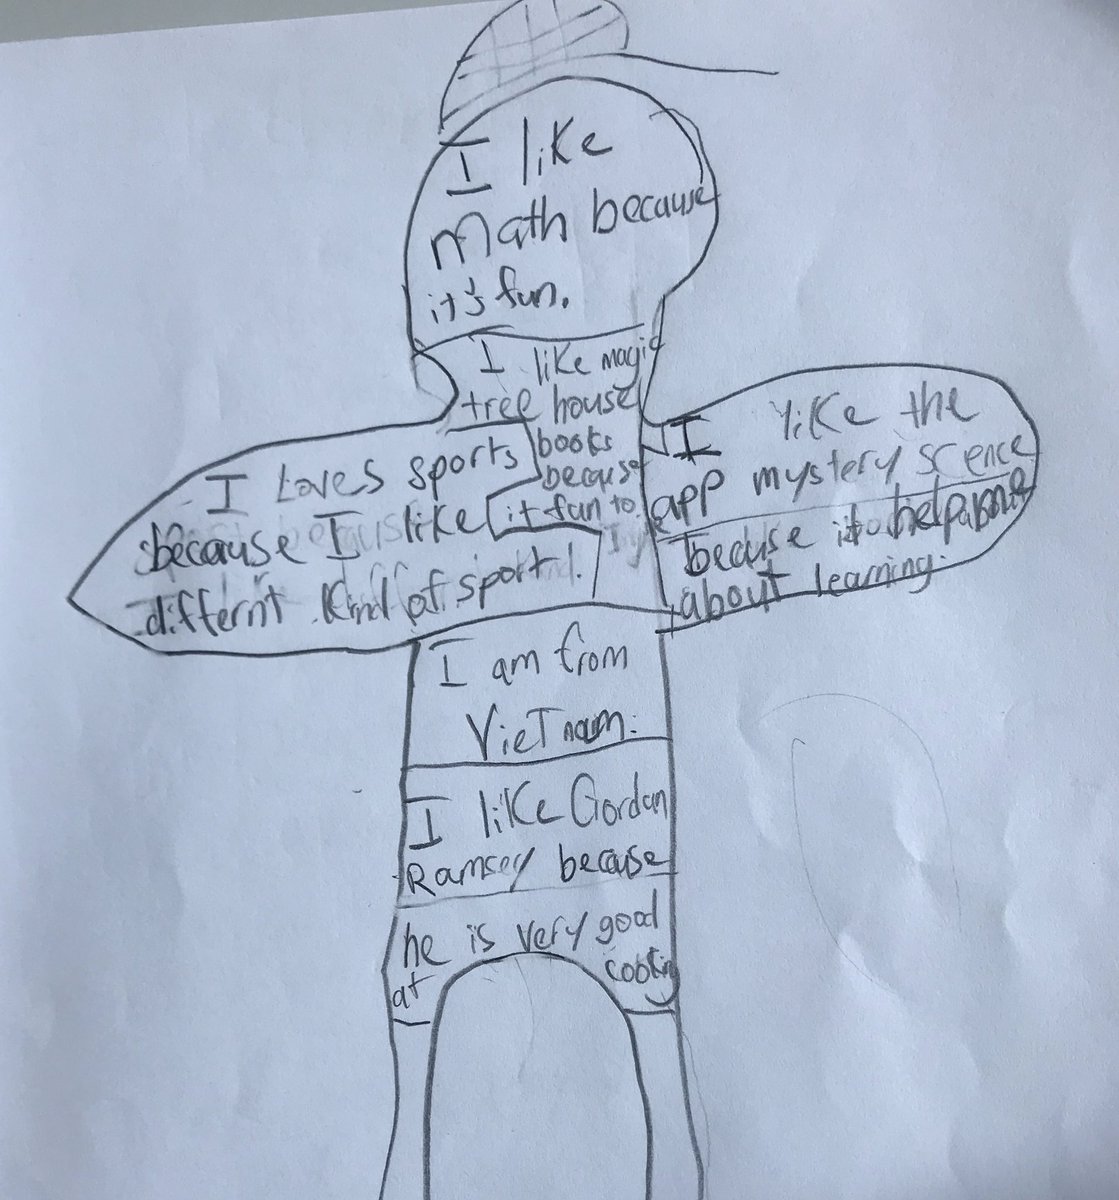 I like
Math because
it's fun.
I like magic
tree house
books
because
it fun to
I Loves sports
because I like
differnt kind of sport!
I like the
app mystery scence
because it
about learning.
I am from
VieT nam.
I like Gordan
Ramsey because
he is very good
at cooking